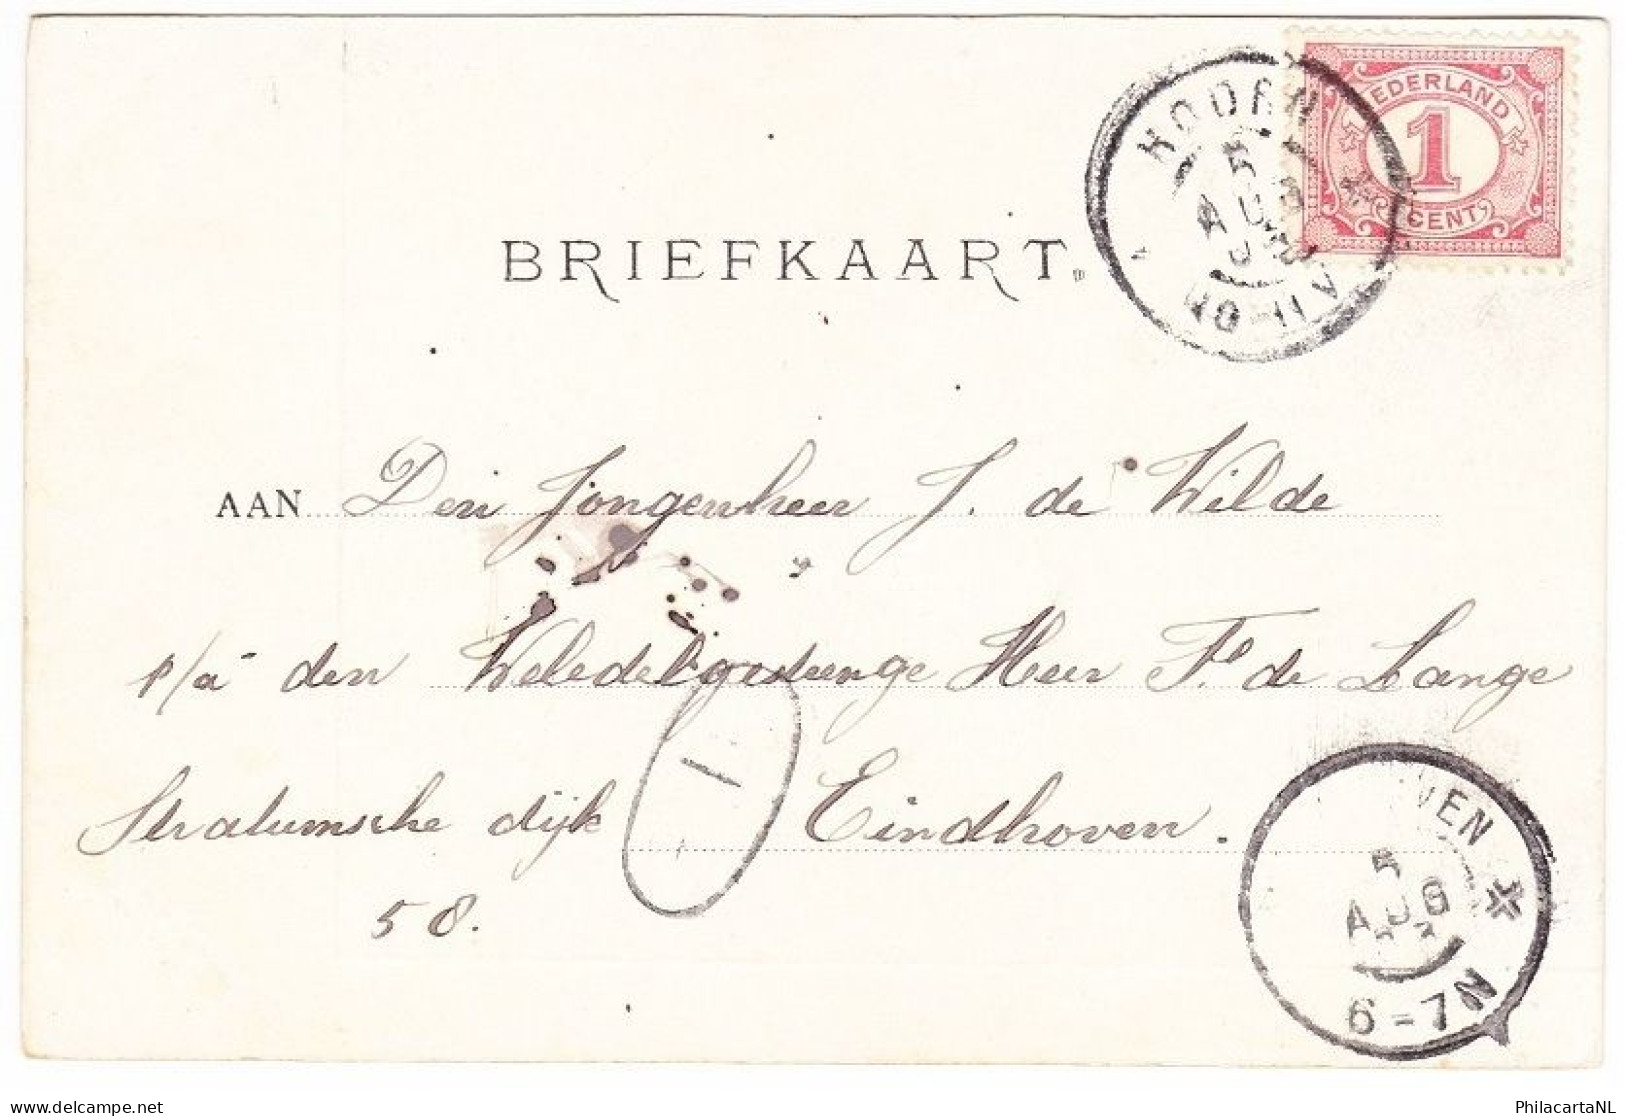 NEDERLAND
1
CENT
HOORN
5
AUG
10-11V
BRIEFKAART.
AAN Den Jongenheer J. de Wilde
p/a den Weledelgestrenge Heer F. de Lange
Stratumsche dijk Eindhoven.
58.
VEN
5
AUG
6-7N
delcampe.net
PhilacartaNL